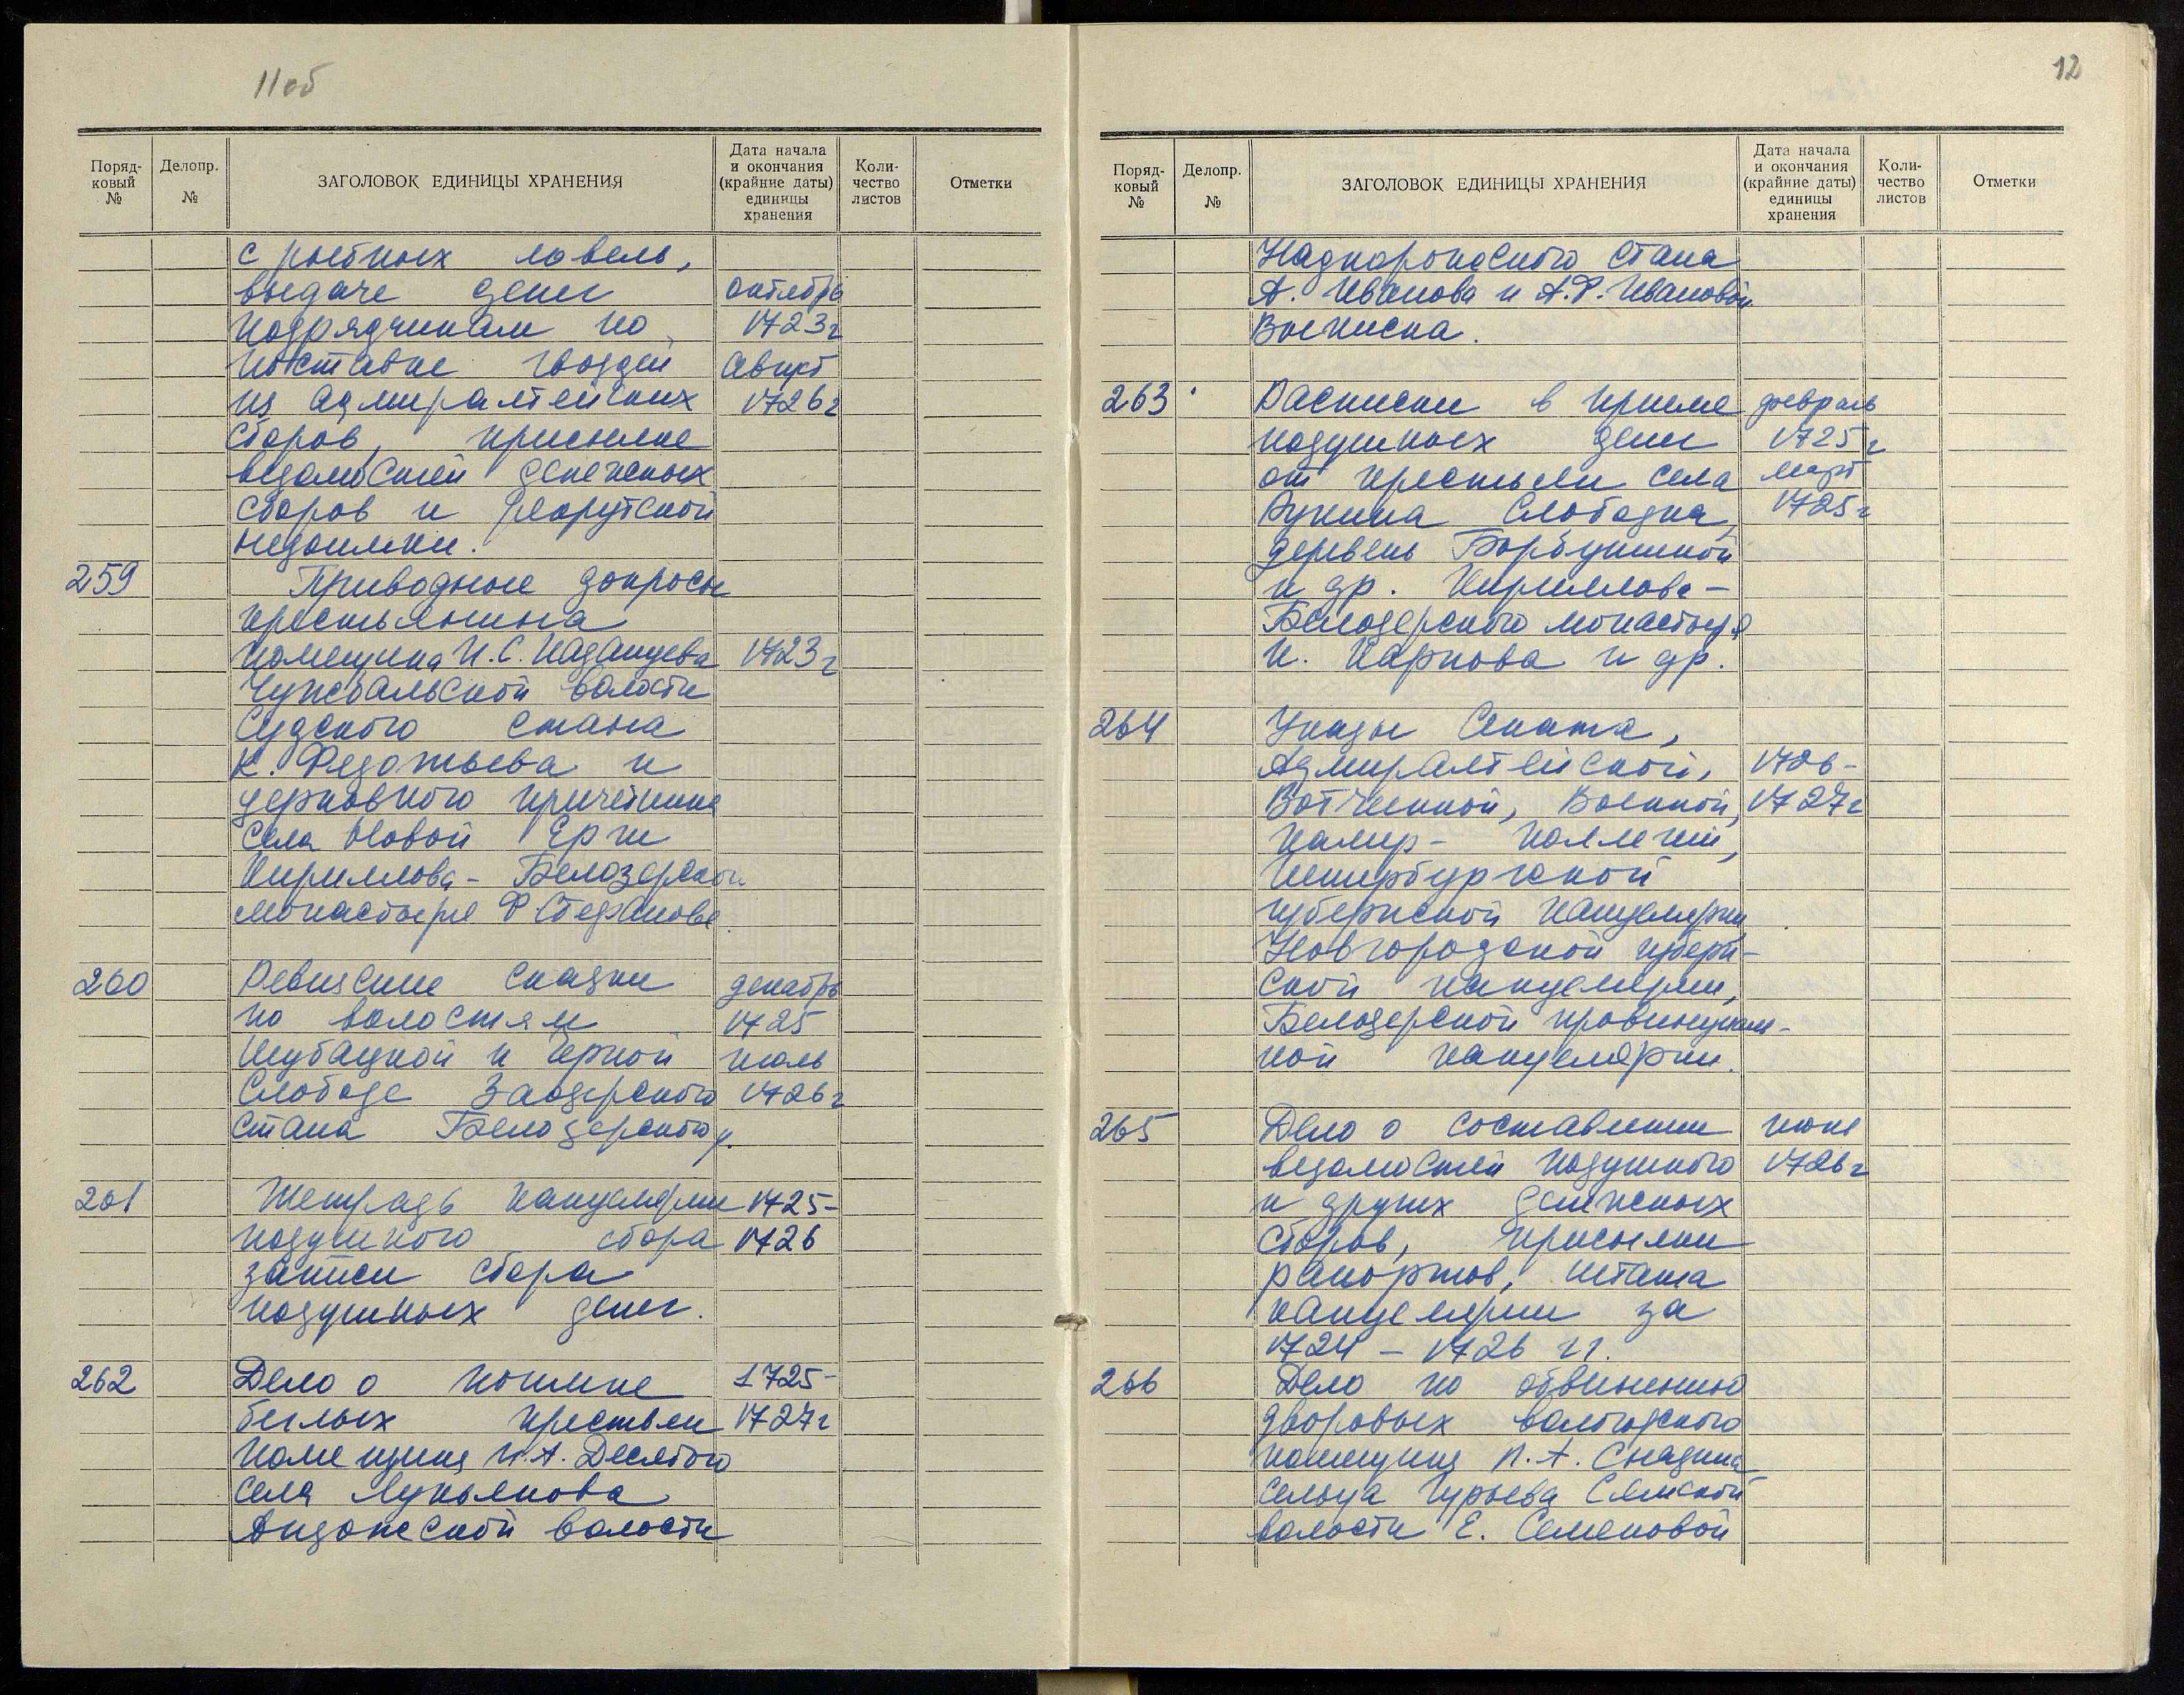 11об
Поряд-
ковый
№
Делопр.
№
ЗАГОЛОВОК ЕДИНИЦЫ ХРАНЕНИЯ
Дата начала
и окончания
(крайние даты)
единицы
хранения
Коли-
чество
листов
Отметки
с рыбных ловель,
выдаче денег октябрь
подрядчикам по 1723г
поставке гвоздей август
из адмиралтейских 1726г
сборов, присылке
ведомостей денежных
сборов и рекрутской
недоимки.
259 Приводные допросы
крестьянина
помещика И.С. 1723г
Чужбальской волости
Судского стана
К. Федотьева и
церковного причетника
села Новой Ерги
Кириллова-Белозерского
монастыря Ф. Стефанова.
260 Ревизские сказки декабрь
по волостям 1725
Шубацкой и Черной июль
Слободе Заозерского 1726г
стана Белозерского у.
261 Тетрадь канцелярии 1725-
подушного сбора 1726
записи сбора
подушных денег.
262 Дело о поимке 1725-
беглых крестьян 1727г
помещика И.А. Десятого
села Лукьянова
Андожской волости
12
Поряд-
ковый
№
Делопр.
№
ЗАГОЛОВОК ЕДИНИЦЫ ХРАНЕНИЯ
Дата начала
и окончания
(крайние даты)
единицы
хранения
Коли-
чество
листов
Отметки
Надпорожского стана
А. Иванова и А.Ф. Ивановой
Выписка.
263 Расписки в приеме февраль
подушных денег 1725г
от крестьян села март
Рукина Слободка, 1725г
деревень Борбушиной
и др. Кириллово-
Белозерского монастыря
И. Карпова и др.
264 Указы Сената,
Адмиралтейской, 1726-
Вотчинной, Военной, 1727г
Камер-Коллегий,
Петербургской
губернской канцелярии,
Новгородской губерн-
ской канцелярии,
Белозерской провинциаль-
ной канцелярии.
265 Дело о составлении июнь
ведомостей подушного 1726г
и других денежных
сборов, присылки
рапортов, штата
канцелярии за
1724 - 1726 гг.
266 Дело по обвинению
дворовых вологодского
помещика П.А.
сельца Гурьева Сямской
волости Е. Семеновой